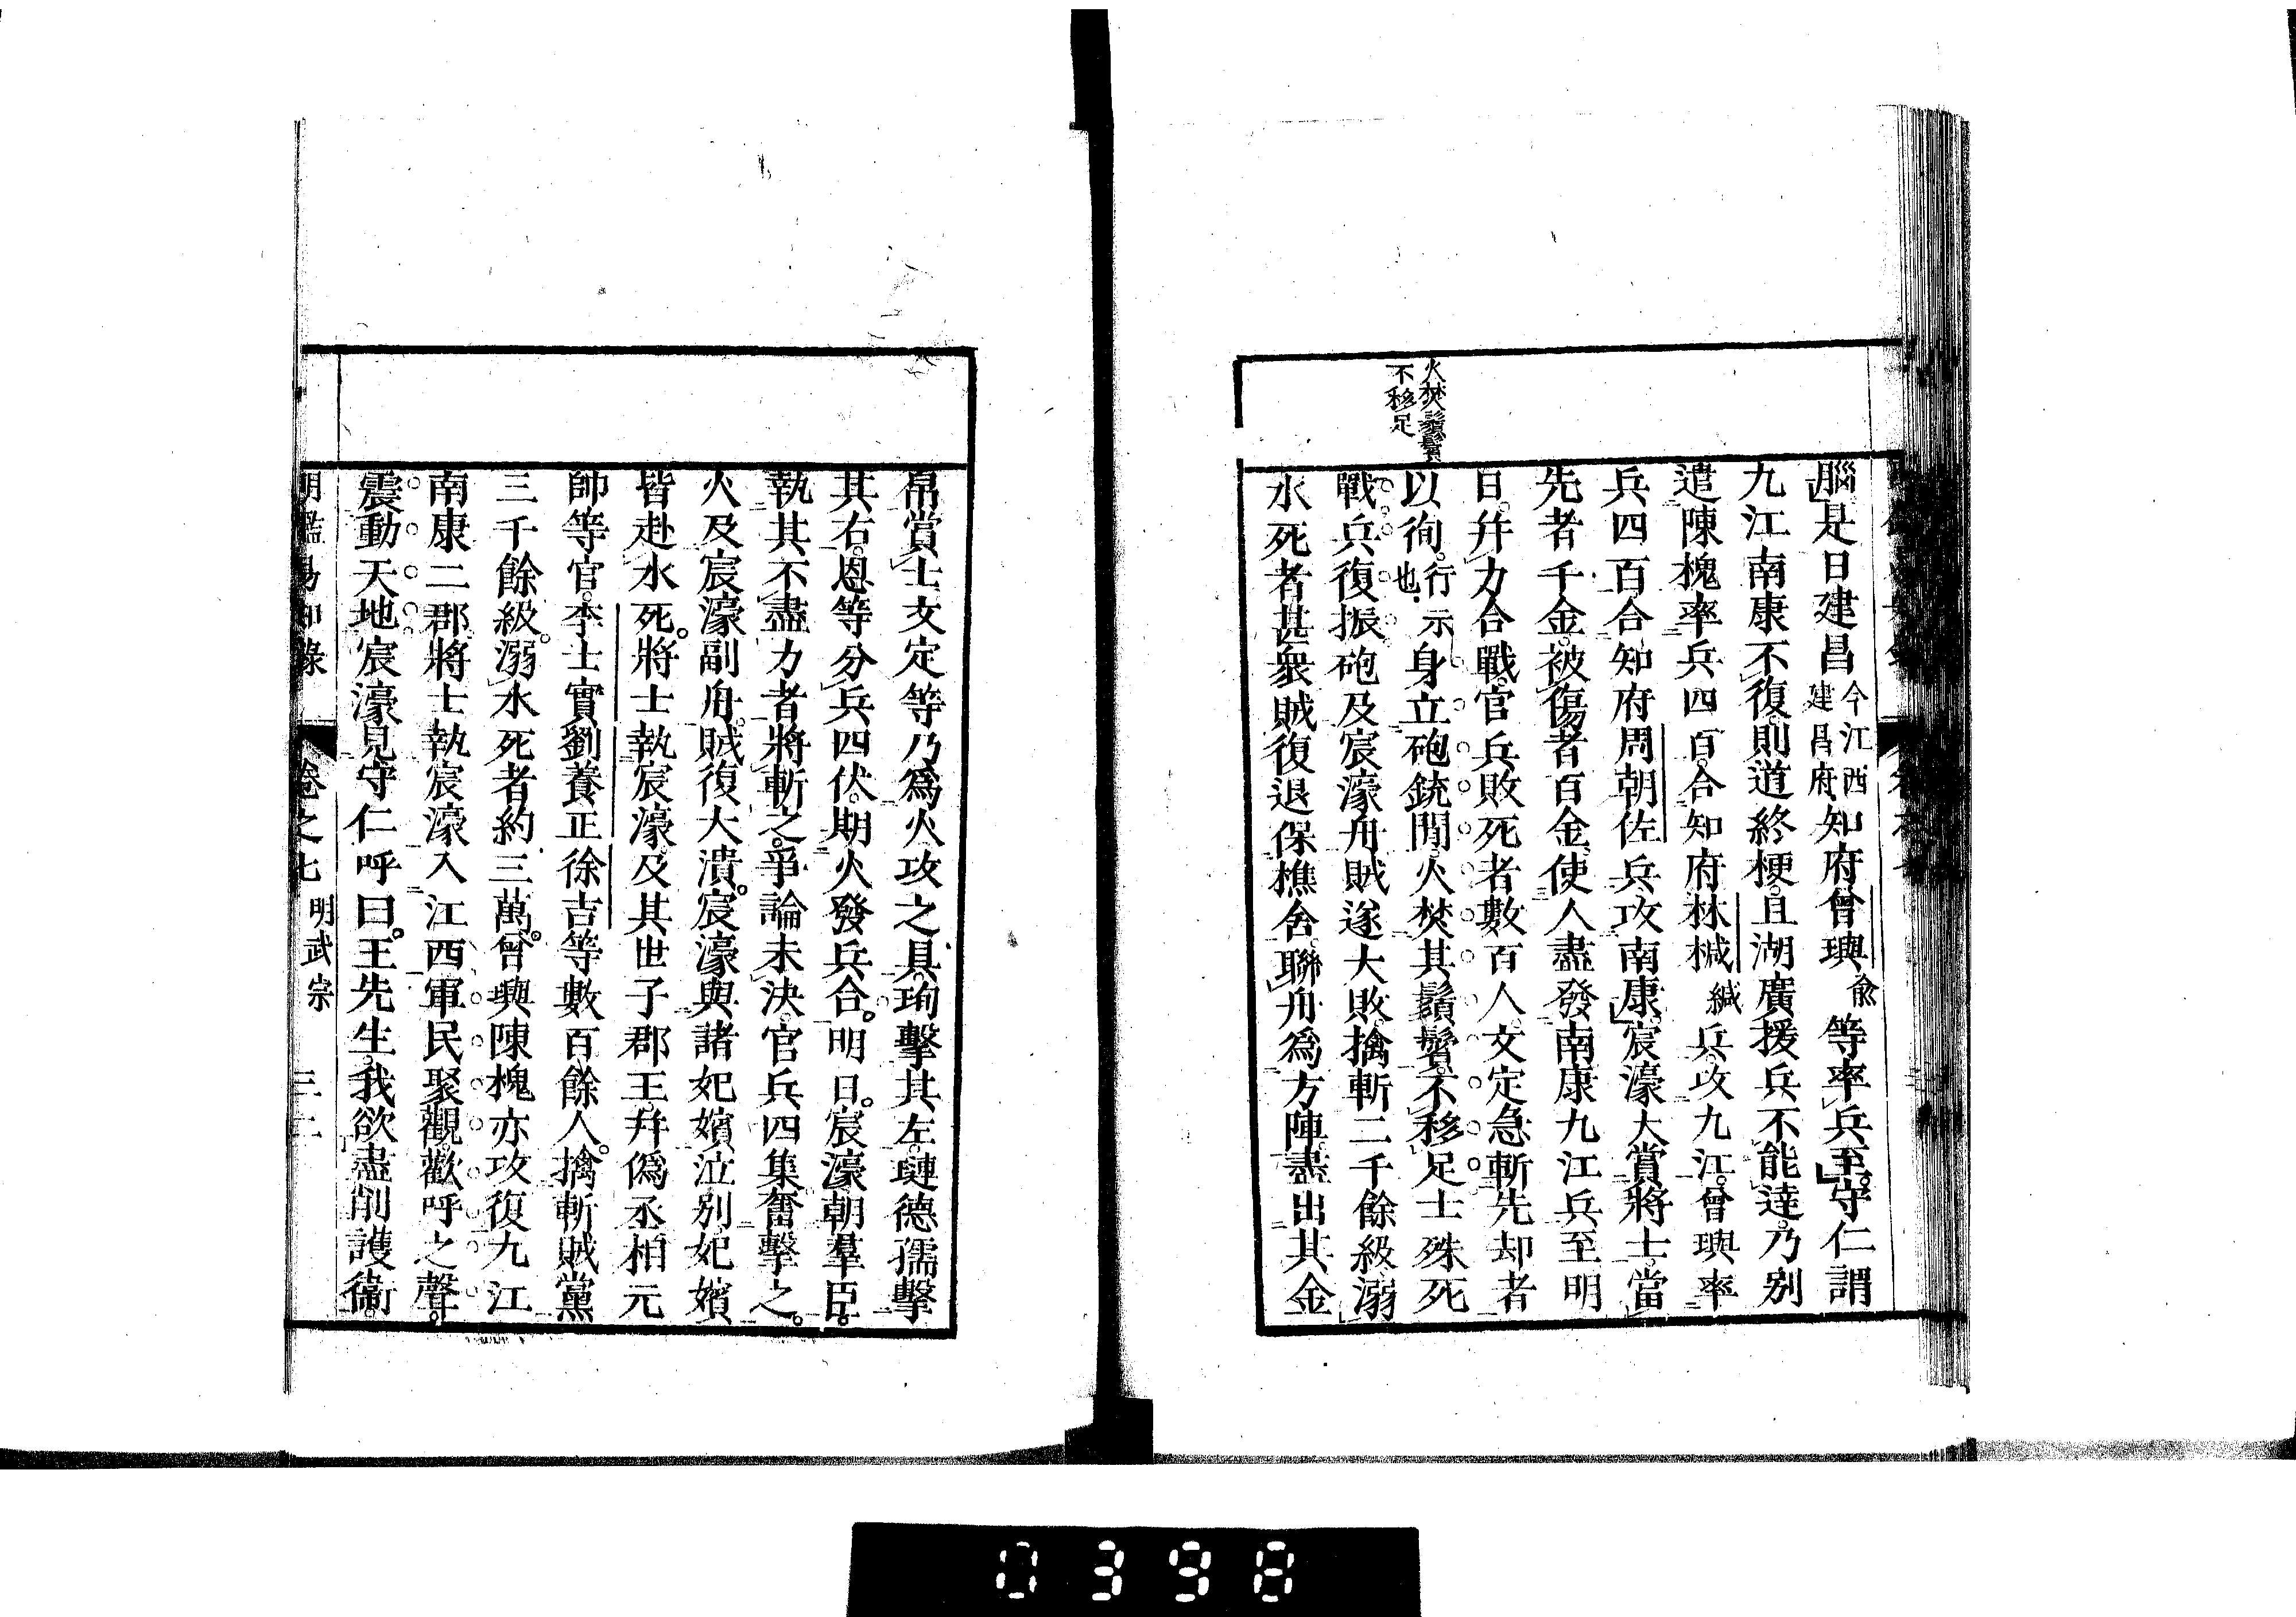 火焚鬚鬢
不移足
腦是日建昌今江西建昌府知府曾璵俞等率兵至守仁謂
九江南康不復則道終梗且湖廣援兵不能達乃別
遣陳槐率兵四百合知府林椷緘兵攻九江曾璵率
兵四百合知府周朝佐兵攻南康宸濠大賞將士當
先者千金被傷者百金使人盡發南康九江兵至明
日幷力合戰官兵敗死者數百人文定急斬先却者
以徇行示也身立砲銃間火焚其鬚鬢不移足士殊死
戰兵復振砲及宸濠舟賊遂大敗擒斬二千餘級溺
水死者甚衆賊復退保樵舍聯舟爲方陣盡出其金
帛賞士文定等乃爲火攻之具珣擊其左璉德孺擊
其右恩等分兵四伏期火發兵合明日宸濠朝羣臣
執其不盡力者將斬之爭論未決官兵四集奮擊之
火及宸濠副舟賊復大潰宸濠與諸妃嬪泣別妃嬪
皆赴水死將士執宸濠及其世子郡王幷僞丞相元
帥等官李士實劉養正徐吉等數百餘人擒斬賊黨
三千餘級溺水死者約三萬曾璵陳槐亦攻復九江
南康二郡將士執宸濠入江西軍民聚觀歡呼之聲
震動天地宸濠見守仁呼曰王先生我欲盡削護衞
明鑑易知錄 卷之七 明武宗 三二
0398